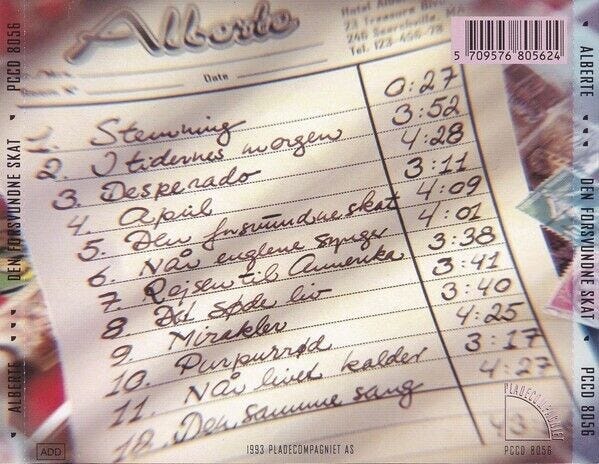 PCCD 8056
DEN FORSVUNDNE SKAT
ALBERTE
Alberte
23 Treasure
Tel. 123 456-78
Date
5 709576 805624
1. Stemning 0:27
2. I tidernes morgen 3:52
3. Desperado 4:28
4. April 3:11
5. Den forsvundne skat 4:09
6. Når englene synger 4:01
7. Rejsen til Amerika 3:38
8. Det søde liv 3:41
9. Mirakler 3:40
10. Purpurrød 4:25
11. Når livet kalder 3:17
12. Den samme sang 4:27
ADD
1993 PLADECOMPAGNIET AS
PLADECOMPAGNIET
PCCD 8056
ALBERTE
DEN FORSVUNDNE SKAT
PCCD 8056